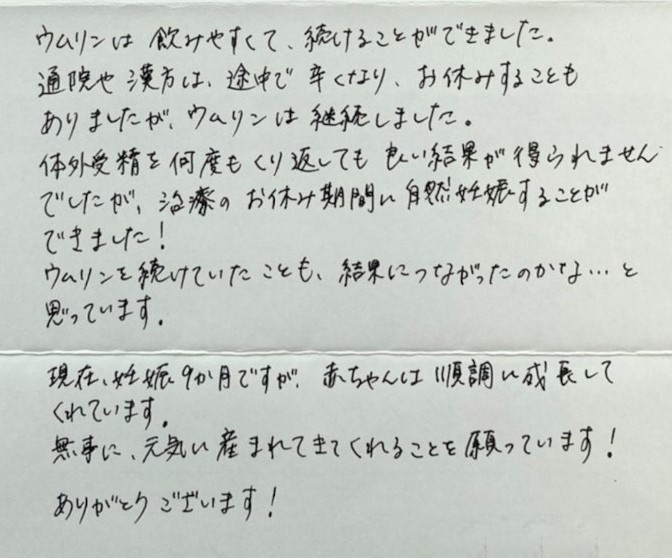 ウムリンは 飲みやすくて、続けることができました。
通院や漢方は、途中で 辛くなり、お休みすることも
ありましたが、ウムリンは継続しました。
体外受精を何度もくり返しても良い結果が得られません
でしたが、治療のお休み期間に自然妊娠することが
できました！
ウムリンを続けていたことも、結果につながったのかな…と
思っています。
現在、妊娠9か月ですが、赤ちゃんは順調に成長して
くれています。
無事に、元気に産まれてきてくれることを願っています！
ありがとうございます！